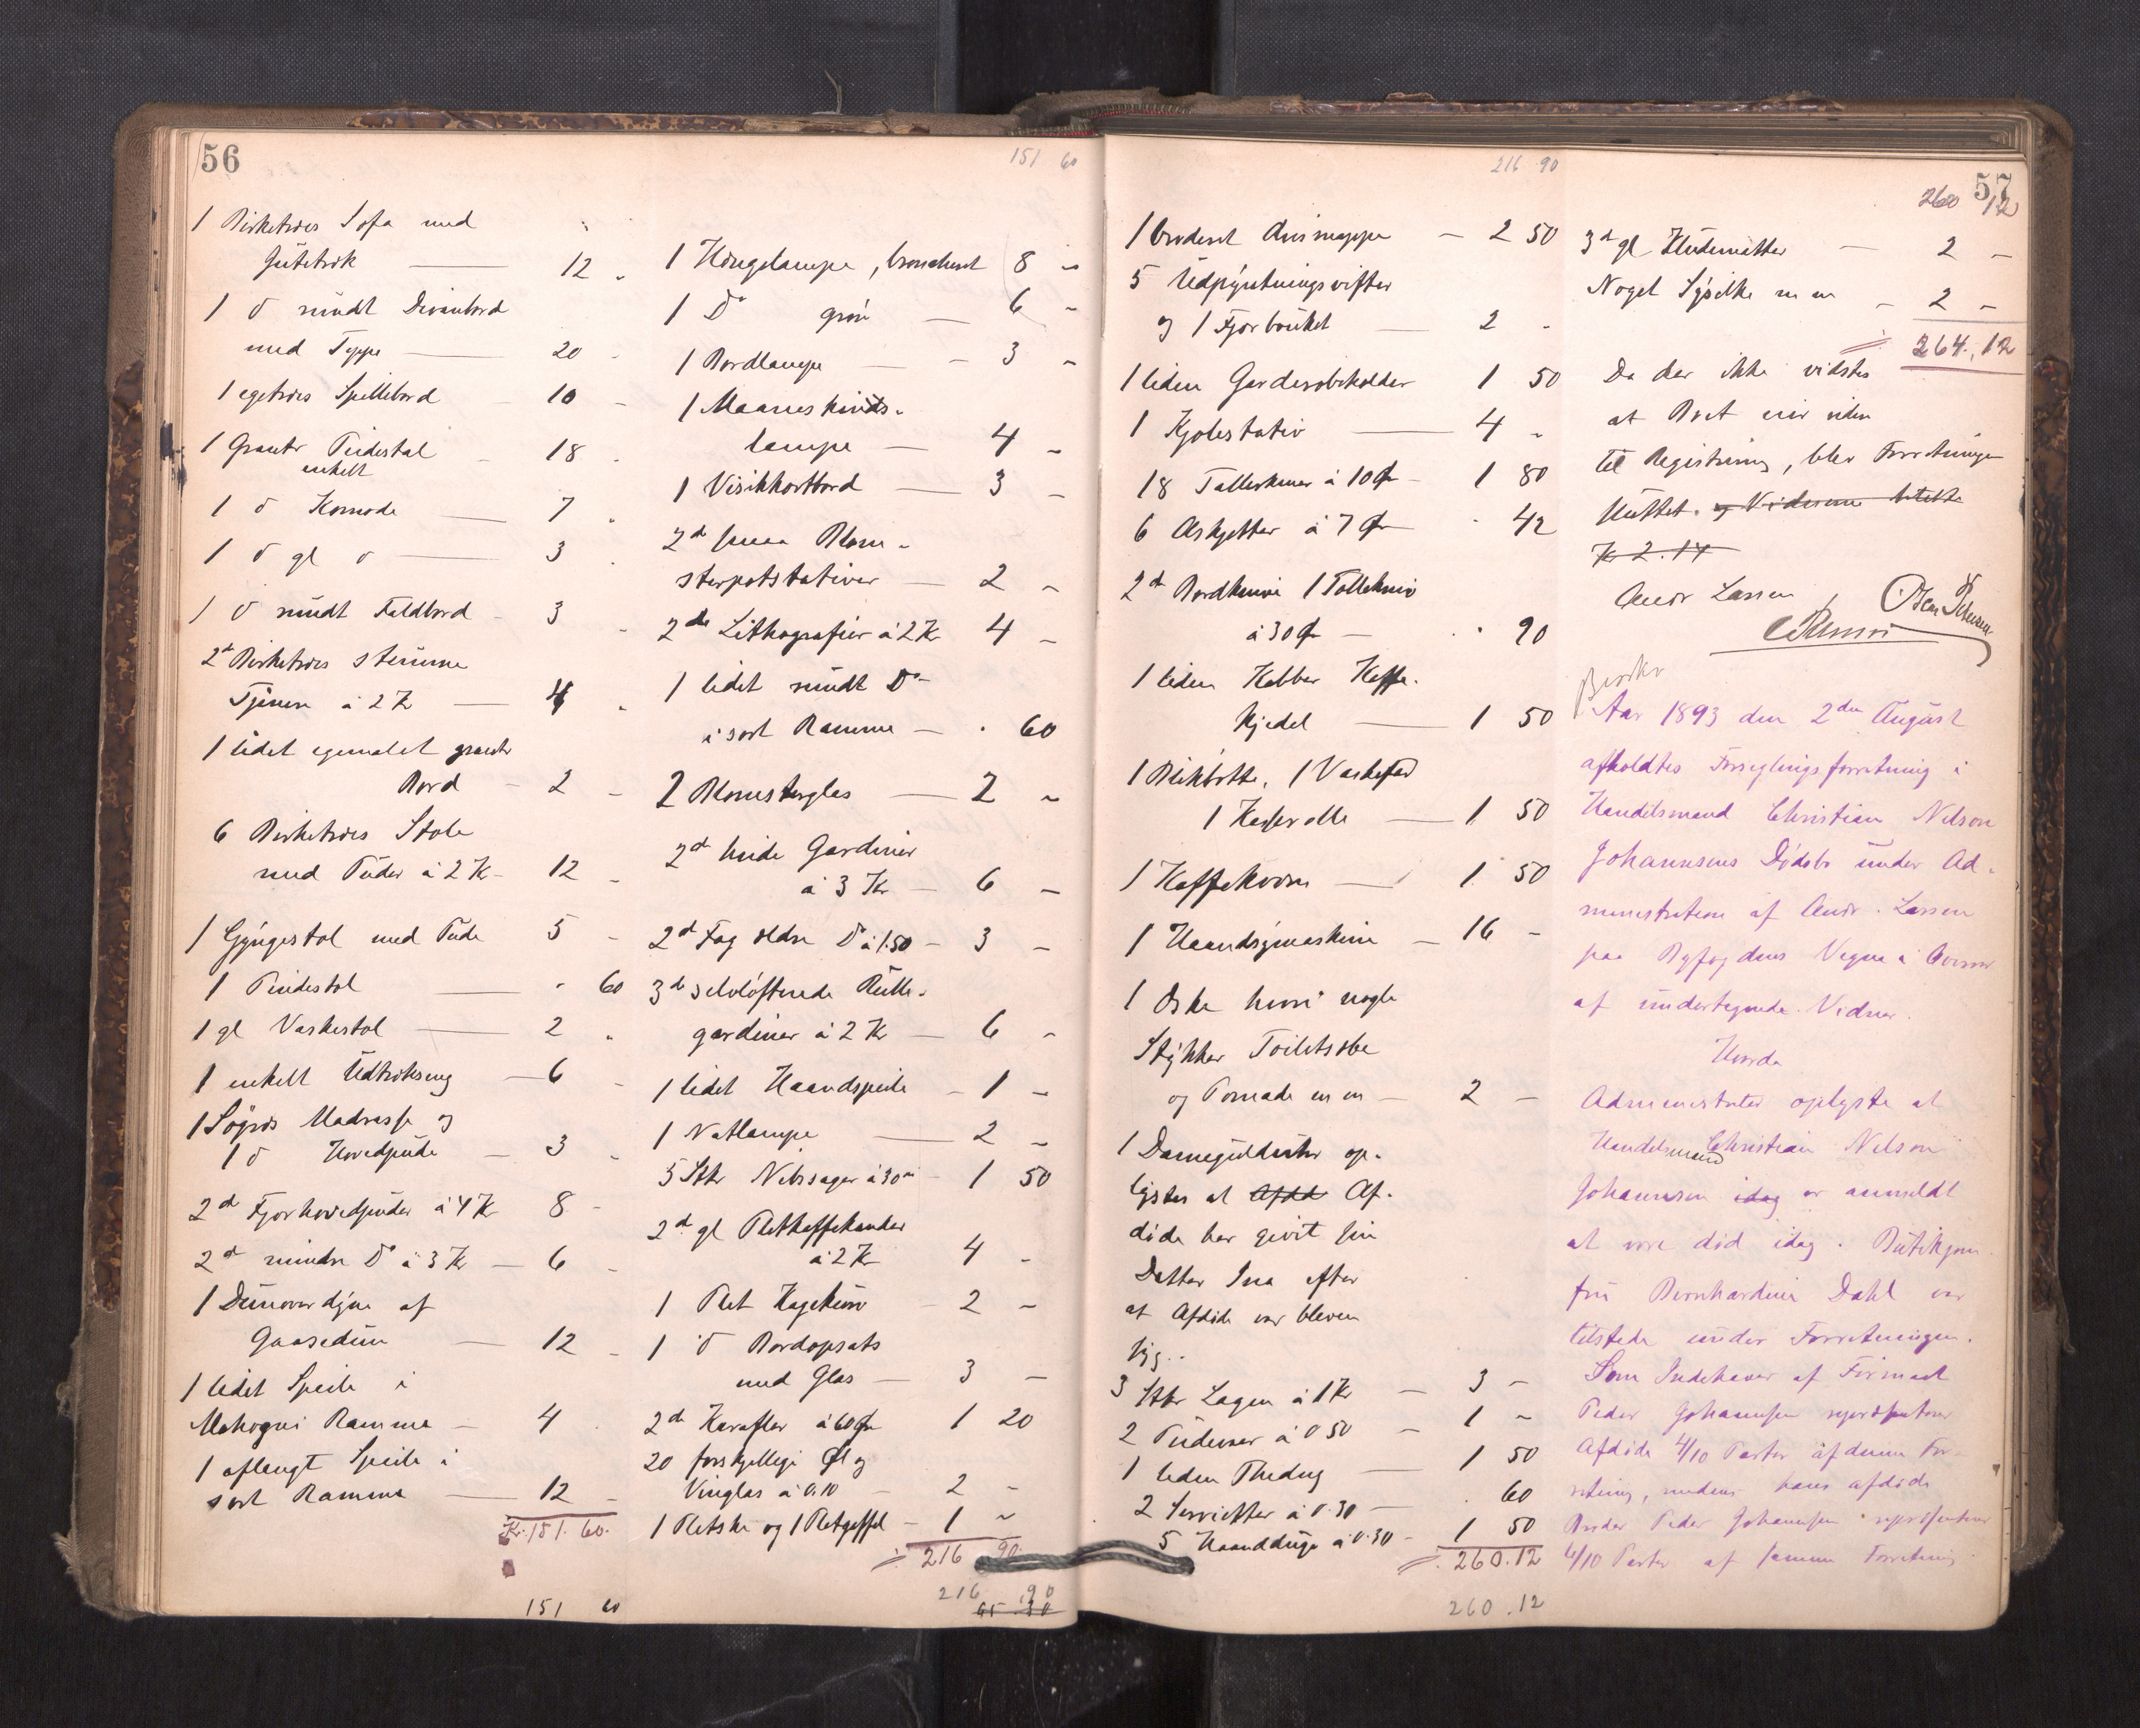 56
151 60
1 Birketræes Sofa med
Jutetræk — 12 "
1 do rundt Divanbord
med Teppe — 20 -
1 egetræes Spillebord - 10 -
1 Grantr Pidestal - 18 -
enkelt
1 do Komode — 7 "
1 do gl do — 3 -
1 do rundt Faldbord - 3 -
2d Birketræes stumme
Tjenere à 2 Kr — 4 "
1 lidet egemalet grantr
Bord - 2 -
6 Birketræes Stole
med Puder à 2 Kr - 12 -
1 Gyngestol med Pude 5 -
1 Pindestol — " 60
1 gl Vaskestol — 2 "
1 enkelt Udtræksseng — 6 -
1 Søgræs Madrasse og
1 do Hovedpude - 3 -
2d Fjærhovedpuder à 4 Kr 8 -
2d mindre Do à 3 Kr - 6 -
1 Dunoverdyne af
Gaasedun — 12 -
1 lidet Speile i
Mahogni Ramme - 4 -
1 aflangt Speile i
sort Ramme — 12 -
Kr. 151. 60.
151 60
1 Hængelampe, broncheret 8 -
1 Do grøn — 6 -
1 Bordlampe — 3 -
1 Maaneskinds-
lampe — 4 -
1 Visitkortbord — 3 -
2d smaa Blom-
sterpotstativer — 2 -
2de Lithografier à 2 Kr 4 -
1 lidet rundt Do
i sort Ramme — " 60
2 Blomsterglas — 2 -
2d hvide Gardiner
à 3 Kr — 6 -
2d Fag ældre Do à 1.50 - 3 -
3de selvløftende Rulle-
gardiner à 2 Kr — 6 -
1 lidet Haandspeile - 1 -
1 Natlampe — 2 -
5 Stkr Nibssager à 30 - 1 50
2d gl Pletkaffekander
à 2 Kr 4 -
1 Plet Kagekurv - 2 -
1 do Bordopsats
med Glas — 3 -
2de Karafler à 60 Ør 1 20
20 forskjellige Øl og
Vinglas à 0.10 - 2 -
1 Pletske og 1 Pletgaffel - 1 -
216 90.
216 .90
216 90
1 broderet Avismappe - 2 50
5 Udpyntningsvifter
og 1 Fjærbouket — 2 -
1 liden Garderobeholder 1 50
1 Kjolestativ — 4 -
18 Tallerkener à 10 Ør - 1 80
6 Askjetter à 7 Ør - " 42
2de Bordknive 1 Tolleknive
à 30 Ør — " 90
1 liden Kobber Kaffe-
kjedel — 1 50
1 Blikbøtte, 1 Vaskefad
1 Kaserolle — 1 50
1 Kaffekværn — 1 50
1 Haandsymaskine — 16 -
1 Æske hvori nogle
Stykker Toiletsæbe
og Pomade m m — 2 -
1 Dameguldur op-
lystes at Afdd Af-
døde har givet sin
Datter Ina efter
at Afdøde var bleven
syg.
3 Stkr Lagen à 1 Kr - 3 -
2 Pudevar à 0 50 - 1 -
1 liden Thedug — 1 50
2 Servietter à 0.30 — . 60
5 Haandduge à 0.30 - 1 50
260.12
260.12
57
260 12
3d gl Kludematter — 2 -
Noget Sysilke m m - 2 -
264.,12
Da der ikke vidstes
at Boet eier viden
til Registrering, blev Forretningen
sluttet. og Vidnerne betalte
Kr 2.14
Andr Lassen
Aar 1893 den 2den August
afholdtes Forseglingsforretning i
Handelsmand Christian Nelson
Johannsens Dødsbo under Ad-
ministration af Andr. Lassen
paa Byfogdens Vegne i Overvær
af undertegnede Vidner.
Hvorda
Administrator oplyste at
Handelsmand Christian Nelson
Johannsen idag er anmeldt
at være død idag. Butikjom-
fru Bernhardine Dahl var
tilstede under Forretningen.
Som Indehaver af Firmaet
Peder Johannsen representerer
Afdøde 4/10 Parter af denne For-
retning, medens hans afdøde
Broder Peder Johannsen representerer
6/10 Parter af samme Forretning